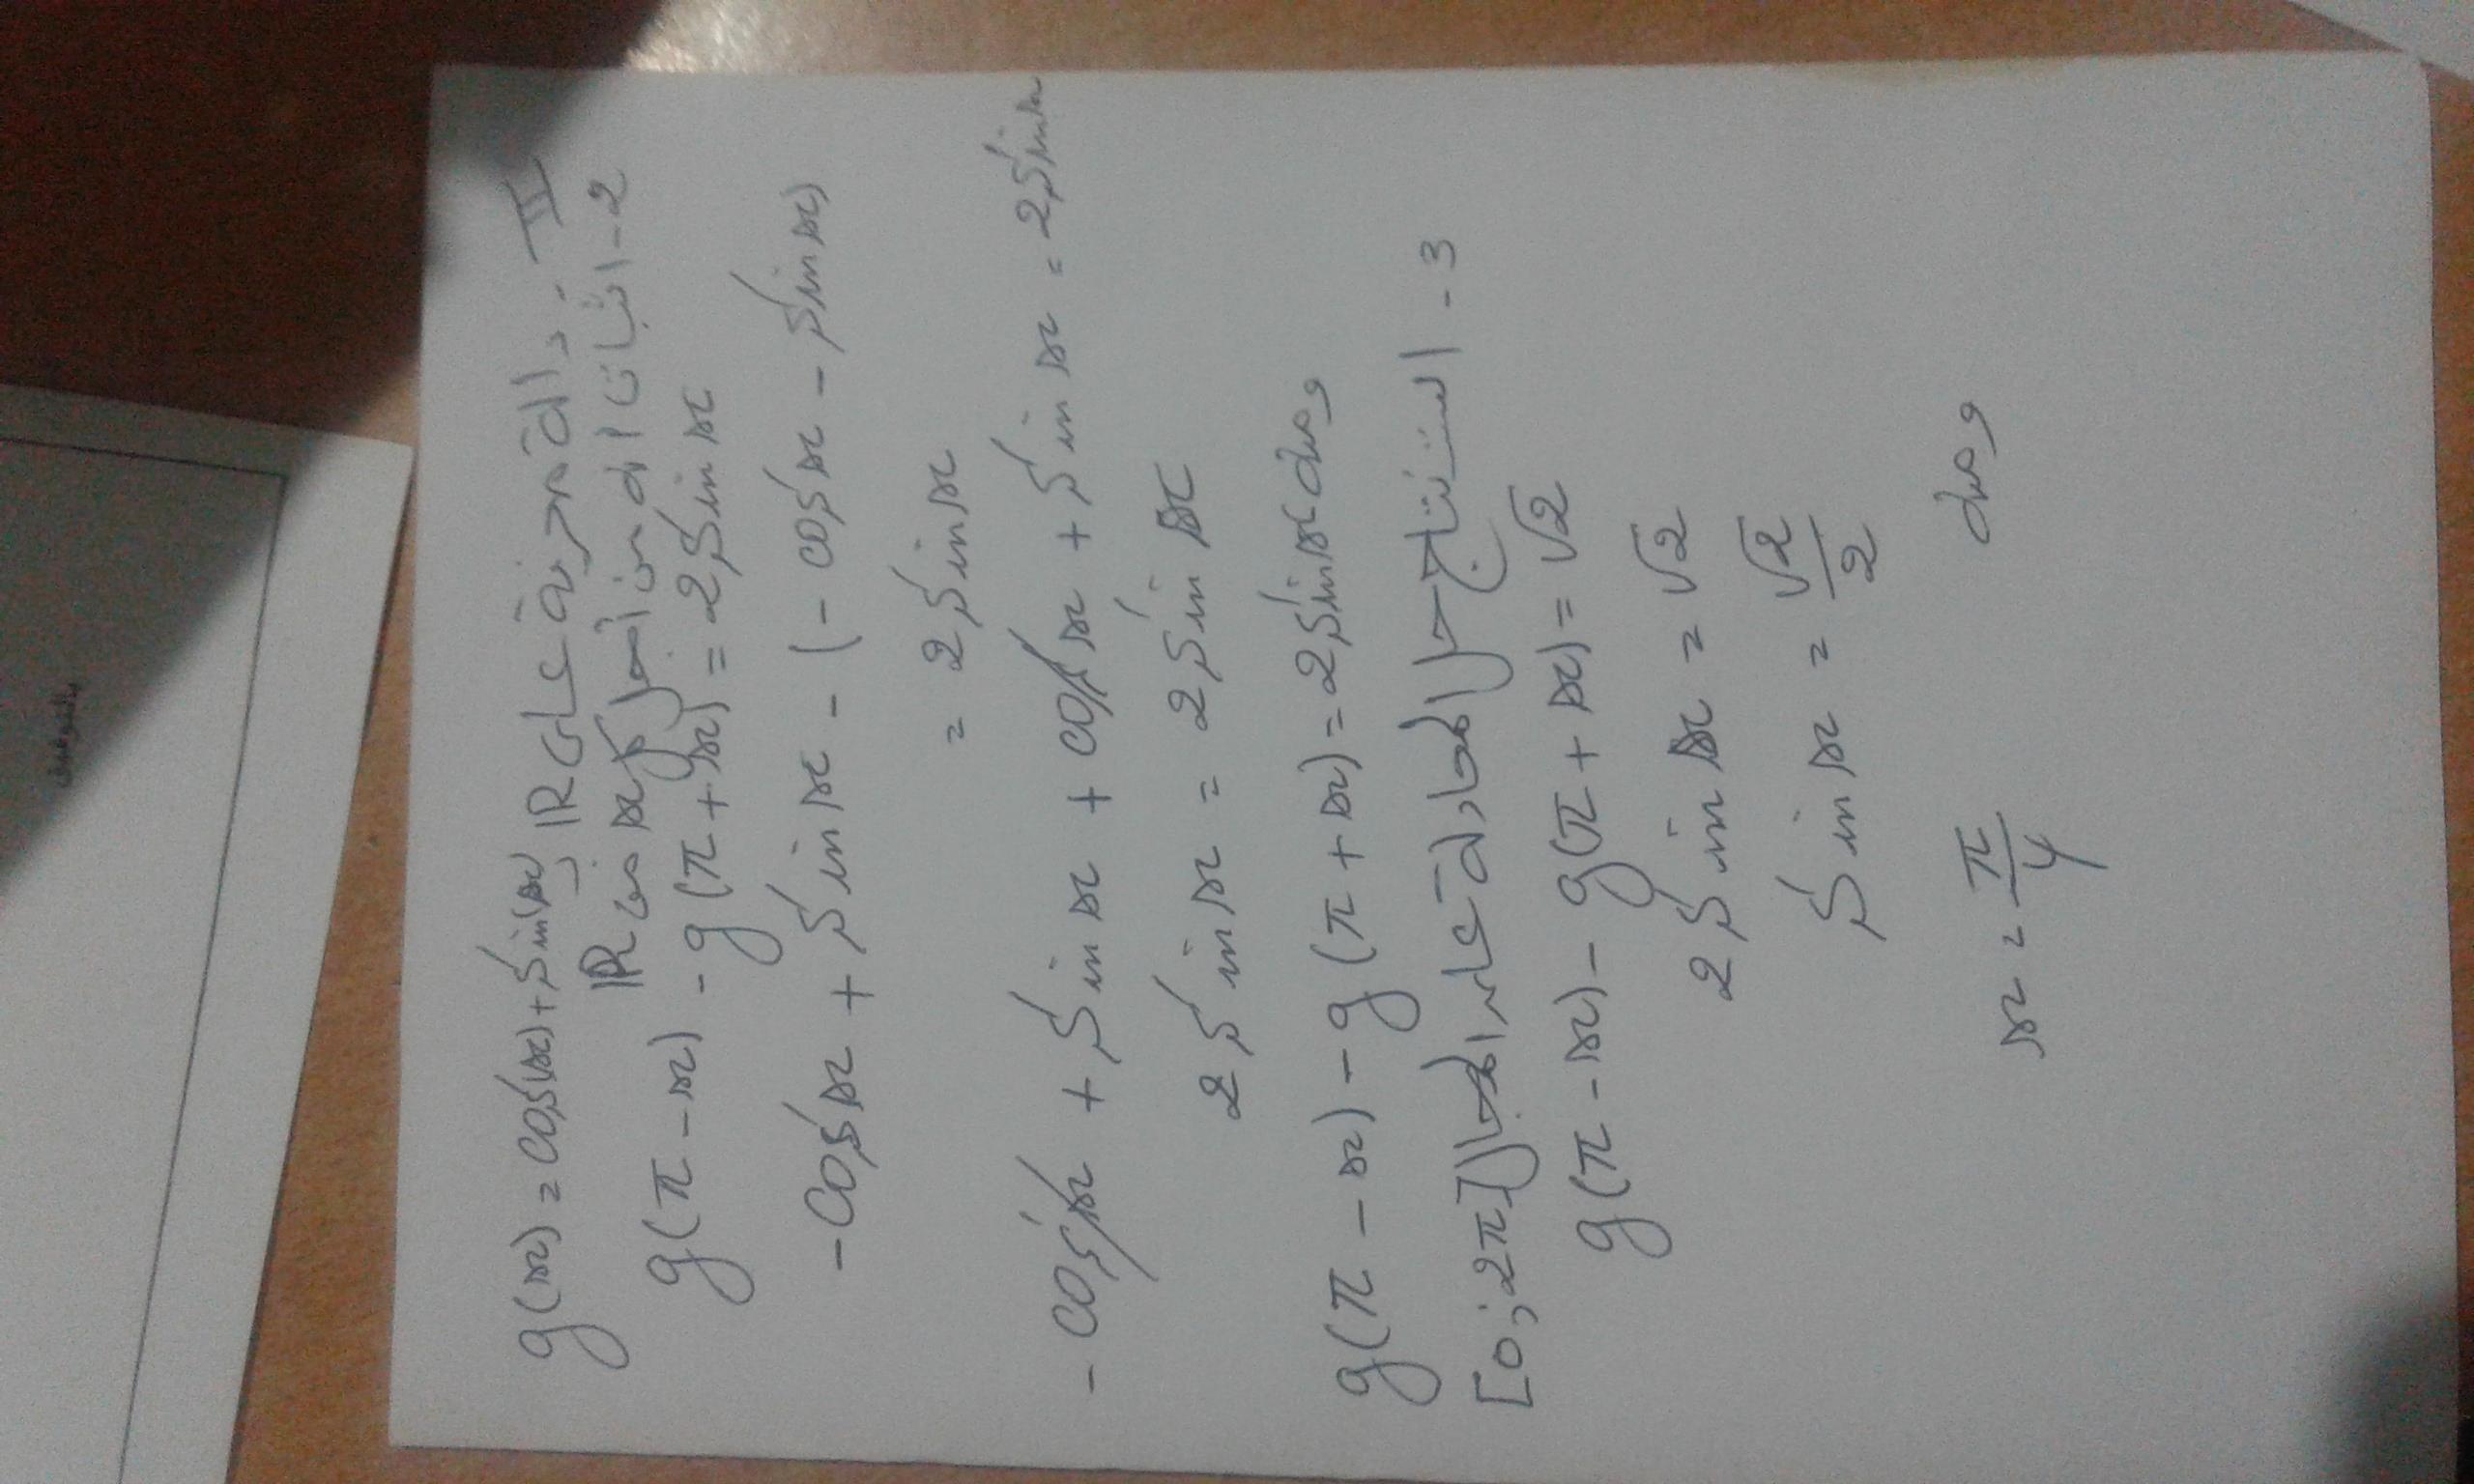 بالتوفيق
II - دالة معرفة على IR بـ g(x) = cos(x) + sin(x)
2 - اثبات ان من اجل كل x من IR
g(π - x) - g(π + x) = 2 sin x
- cos x + sin x - (- cos x - sin x)
= 2 sin x
- cos x + sin x + cos x + sin x = 2 sin x
2 sin x = 2 sin x
g(π - x) - g(π + x) = 2 sin x ومنه
3 - استنتاج حل المعادلة على المجال [0 ; 2π]
g(π - x) - g(π + x) = √2
2 sin x = √2
sin x = √2/2
ومنه
x = π/4